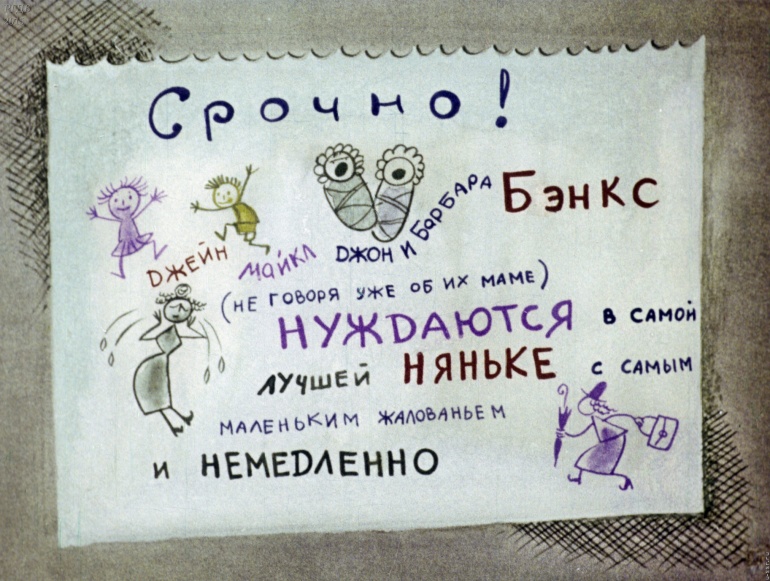 Срочно!
Джейн Майкл Джон и Барбара Бэнкс
(не говоря уже об их маме)
НУЖДАЮТСЯ в самой
лучшей НЯНЬКЕ с самым
маленьким жалованьем
и НЕМЕДЛЕННО